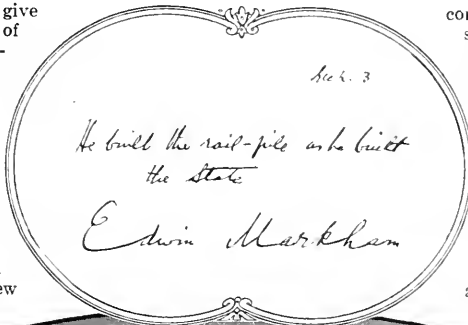 give
of
He built the rail-pile as he built
the State
Edwin Markham